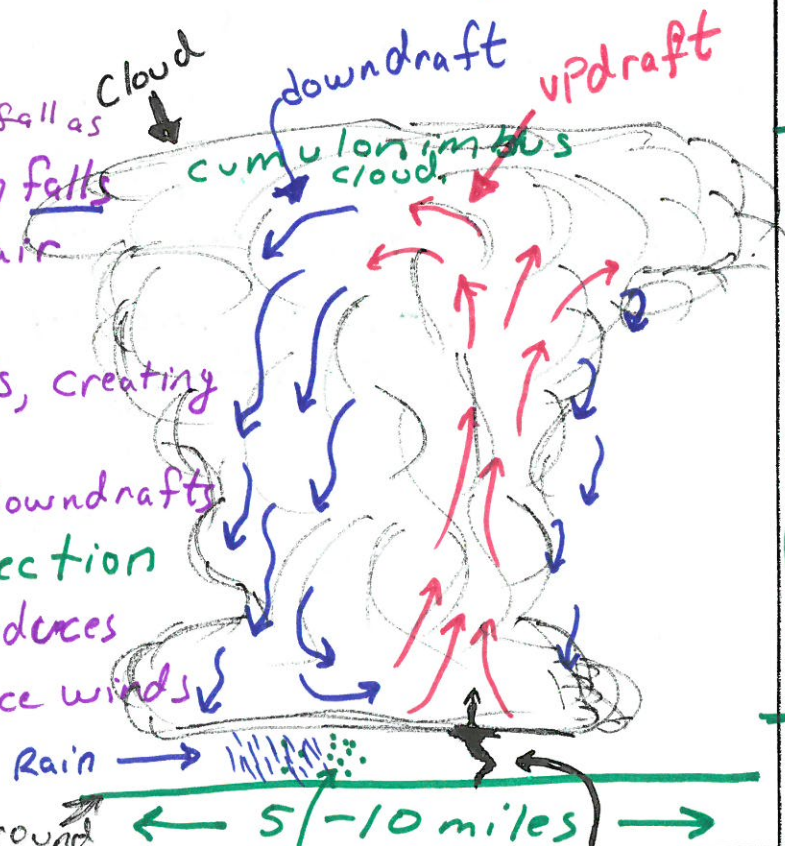 Cloud
downdraft
updraft
fall as
cumulonimbus
cloud
falls
air
s, creating
owndrafts
ection
duces
ce winds
Rain
round
5-10 miles